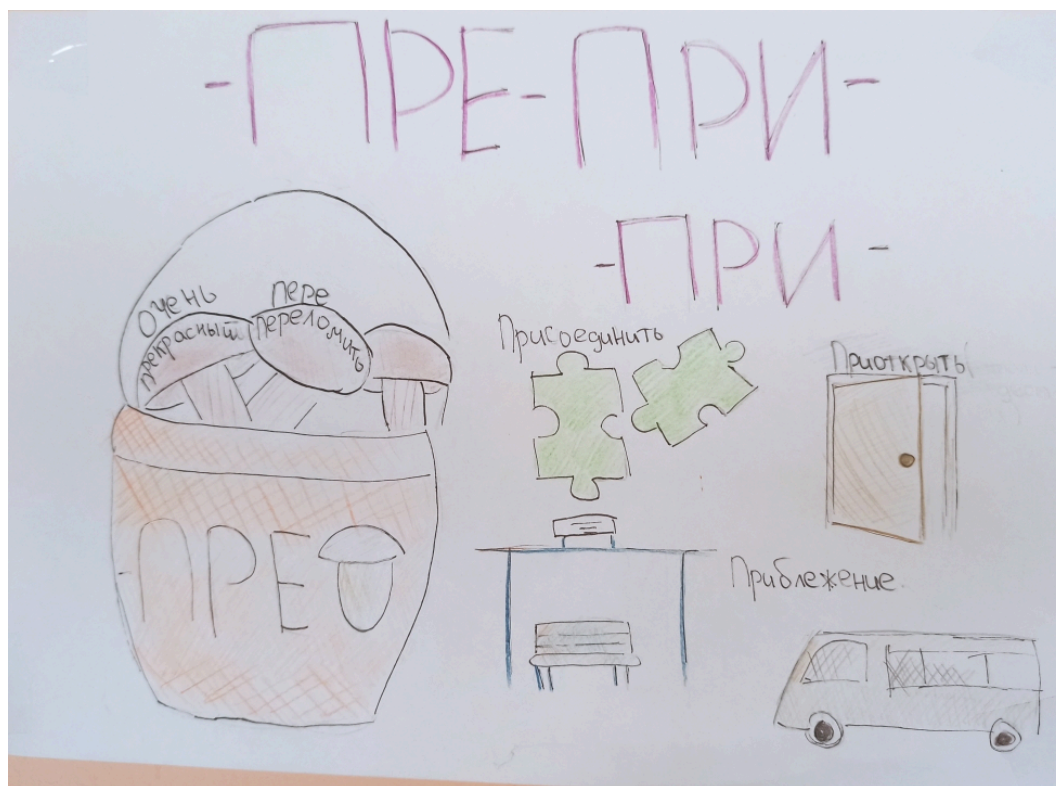 -ПРЕ-ПРИ-
-ПРИ-
Очень
прекрасный
пере
переломить
Присоединить
Приоткрыть
Приблежение.
-ПРЕ